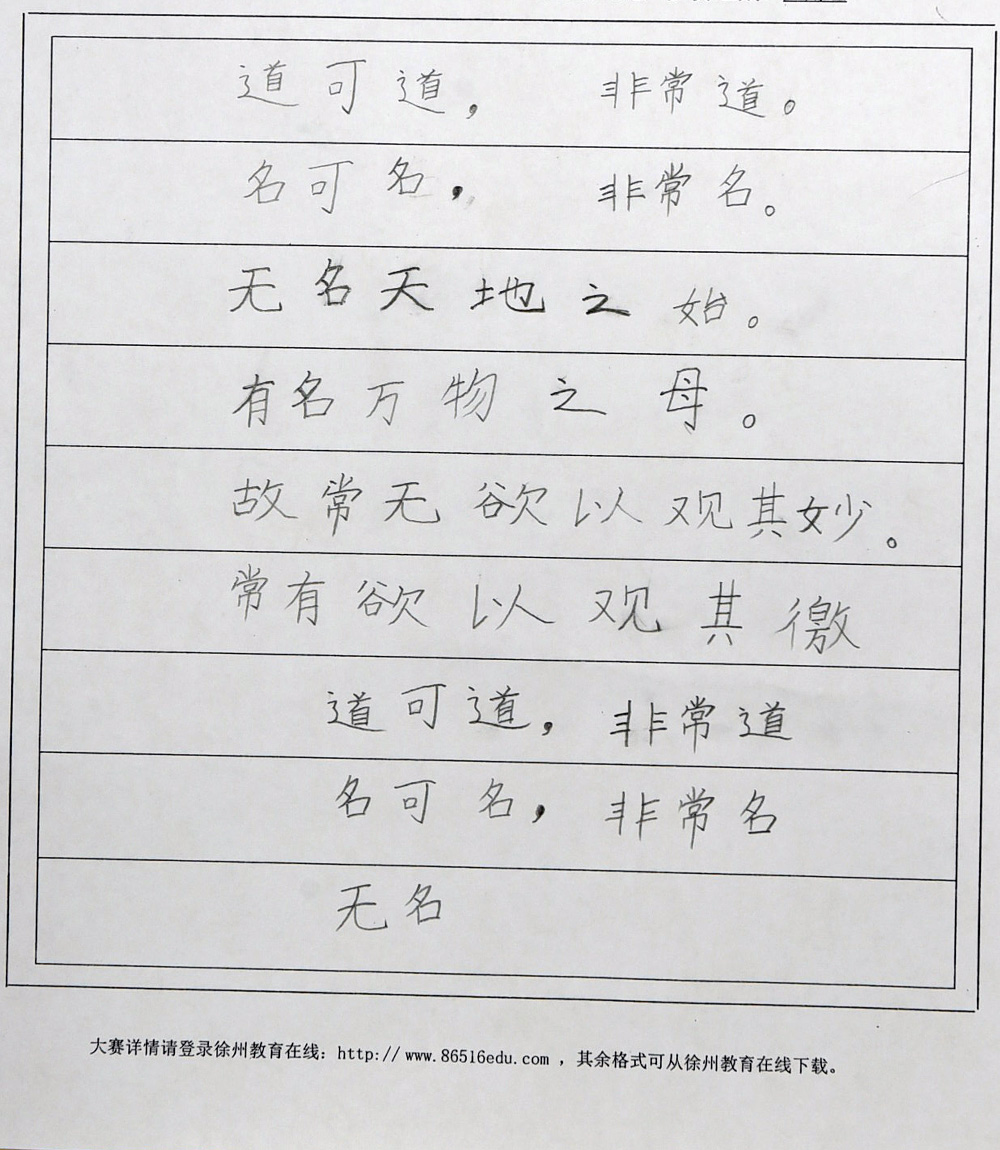 道可道， 非常道。
名可名， 非常名。
无名天地之始。
有名万物之母。
故常无欲以观其妙。
常有欲以观其徼
道可道，非常道
名可名，非常名
无名
大赛详情请登录徐州教育在线：http://www.86516edu.com ，其余格式可从徐州教育在线下载。